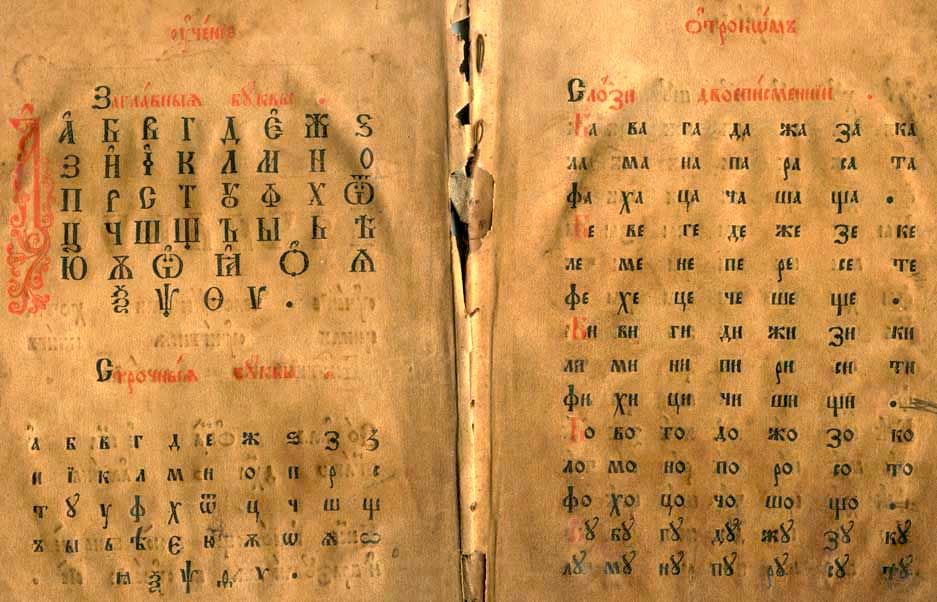 оуче́нїе
о́трокѡмъ
Загла́вныѧ бꙋквы .
А Б В Г Д Є Ж Ѕ
З И І К Л М Н О
П Р С Т Ꙋ Ф Х Ѿ
Ц Ч Ш Щ Ъ Ы Ь Ѣ
Ю Ѫ Ѽ Ꙗ Ѻ Ѧ
Ѯ Ѱ Ѳ Ѵ .
Строчны́ѧ бꙋквы .
а б в г д е ж ѕ з ꙁ
и ї к л м н п р с
т ꙋ у ф х ѿ ц ч ш щ
ъ ы ь ѣ є ю ѫ ѡ ѧ
ꙗ ѯ ѱ ѵ .
Слози двоеписменнии .
Ба ва га да жа за ка
ла ма на па ра са та
фа ха ца ча ша ща .
Бе ве ге де же зе ке
ле ме не пе ре се те
фе хе це че ше ще .
Би ви ги ди жи зи ки
ли ми ни пи ри си ти
фи хи ци чи ши щи .
Бо во го до жо зо ко
ло мо но по ро со то
фо хо цо чо шо що .
Бꙋ вꙋ гꙋ дꙋ жꙋ зꙋ кꙋ
лꙋ мꙋ нꙋ пꙋ рꙋ сꙋ тꙋ